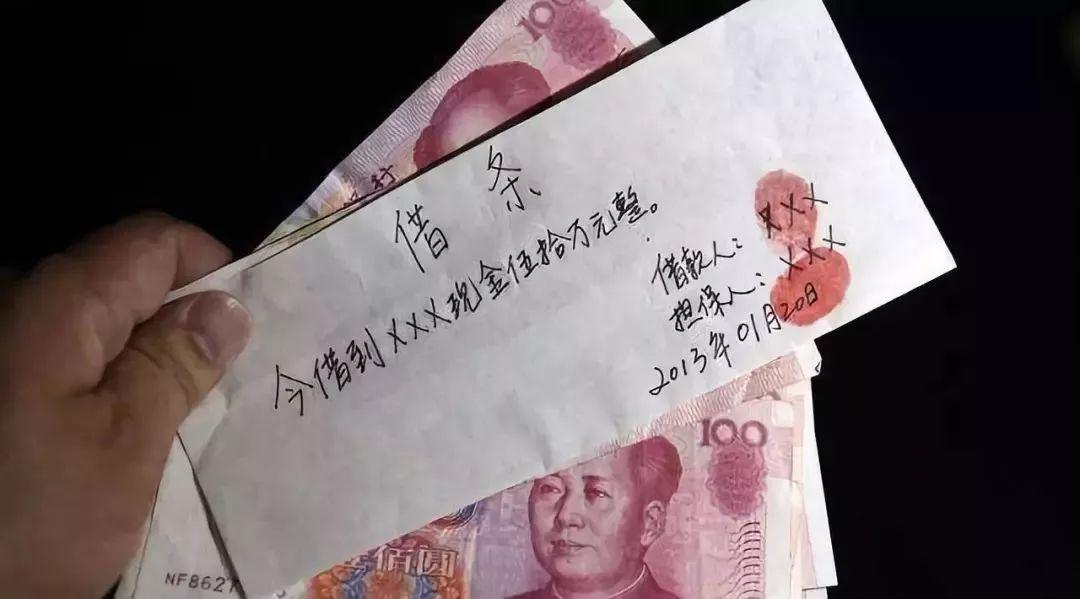 100
行
借条
今借到XXX现金伍拾万元整。
借款人：XXX
担保人：XXX
2013年01月20日
100
佰圆
NF8627